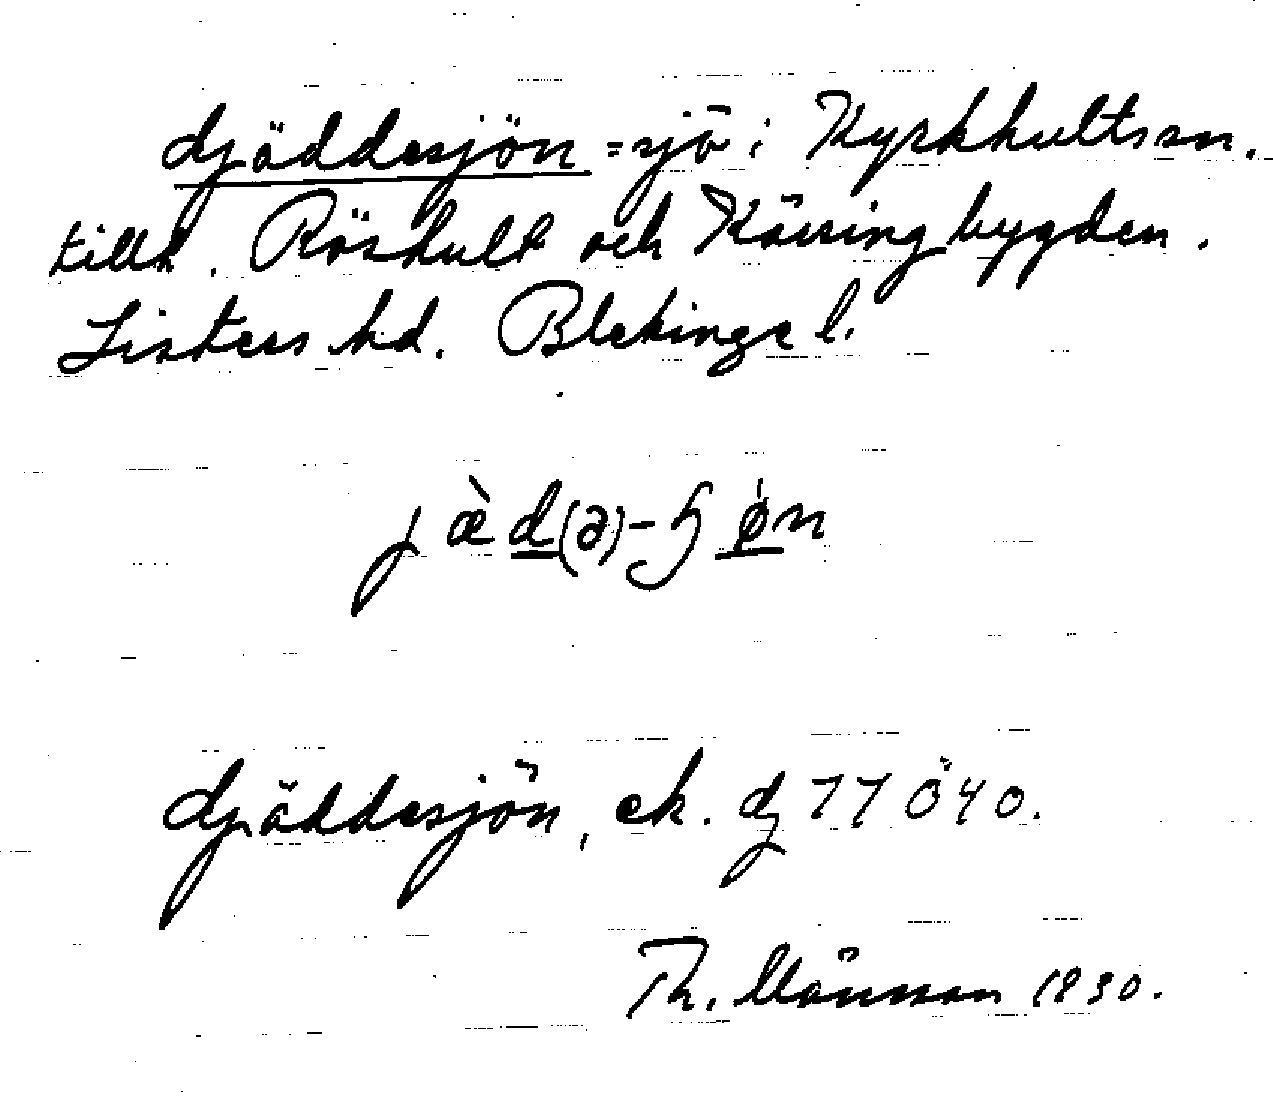 Gjäddesjön = sjö i Kyrkhults sn.
tillh. Röshult och Käringbygden.
Listers hd. Blekinge l.
jæ̀d(ə)-ɧøn
Gjäddesjön, ek. bl 77 Ö 40.
Th. Månsson 1930.